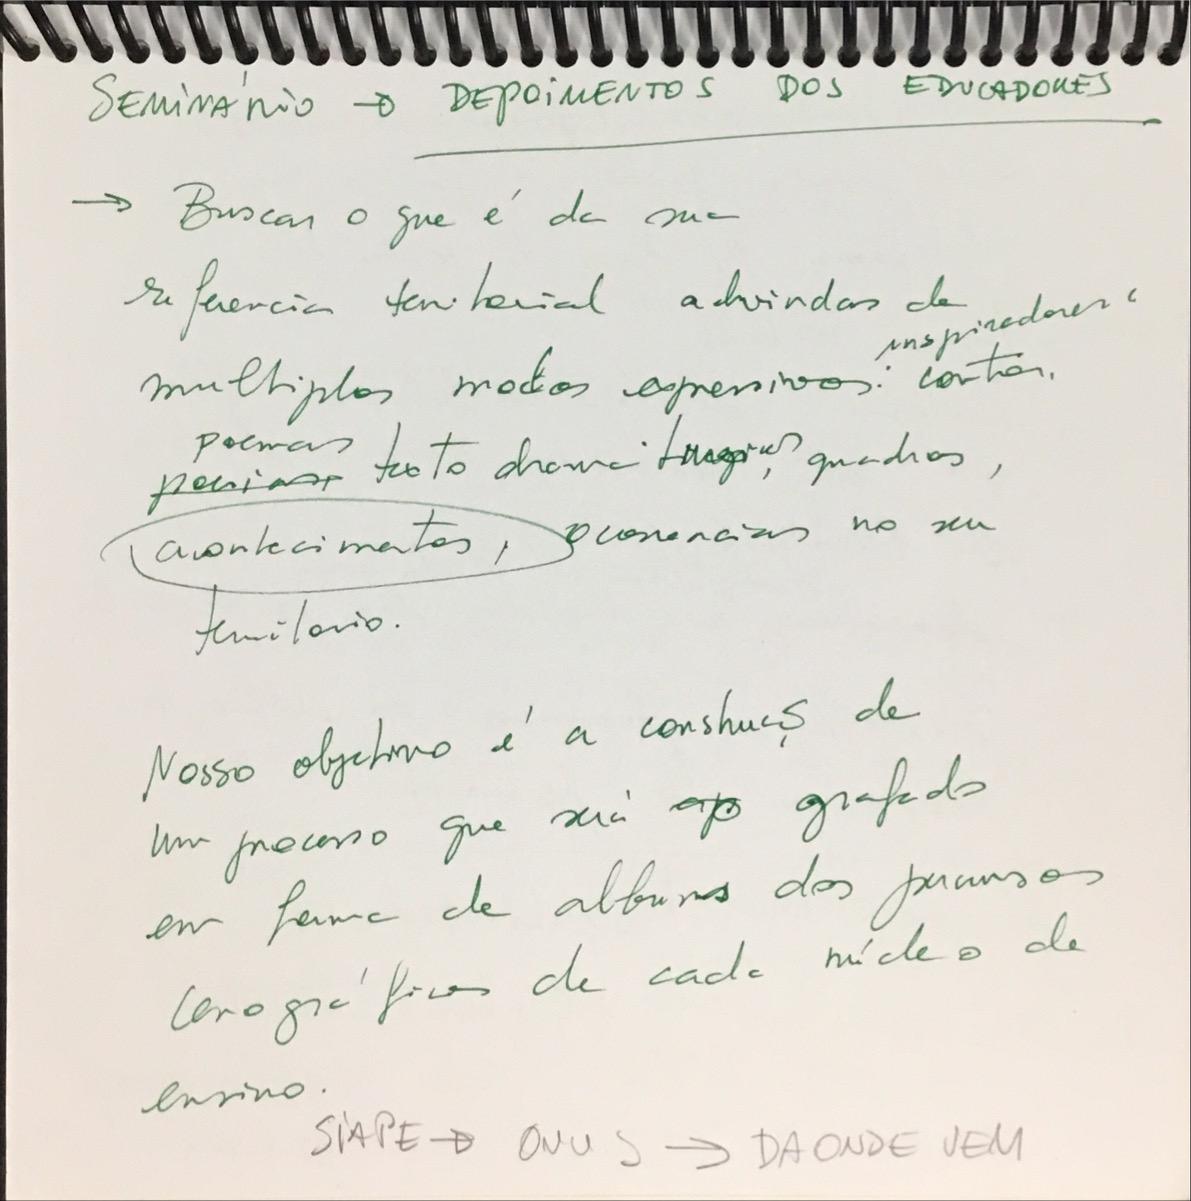 SEMINÁRIO → DEPOIMENTOS DOS EDUCADORES
→ Buscar o que é da sua
referencia territorial advindas de
inspiradores
multiplos modos expressivos: contos,
poemas
texto dramaturgico, quadros,
acontecimentos, ocorrencias no seu
territorio.
Nosso objetivo é a construçõ de
um processo que será grafado
em forma de albuns dos percursos
cenográficos de cada núcleo de
ensino.
SIAPE → ONUS → DAONDE VEM